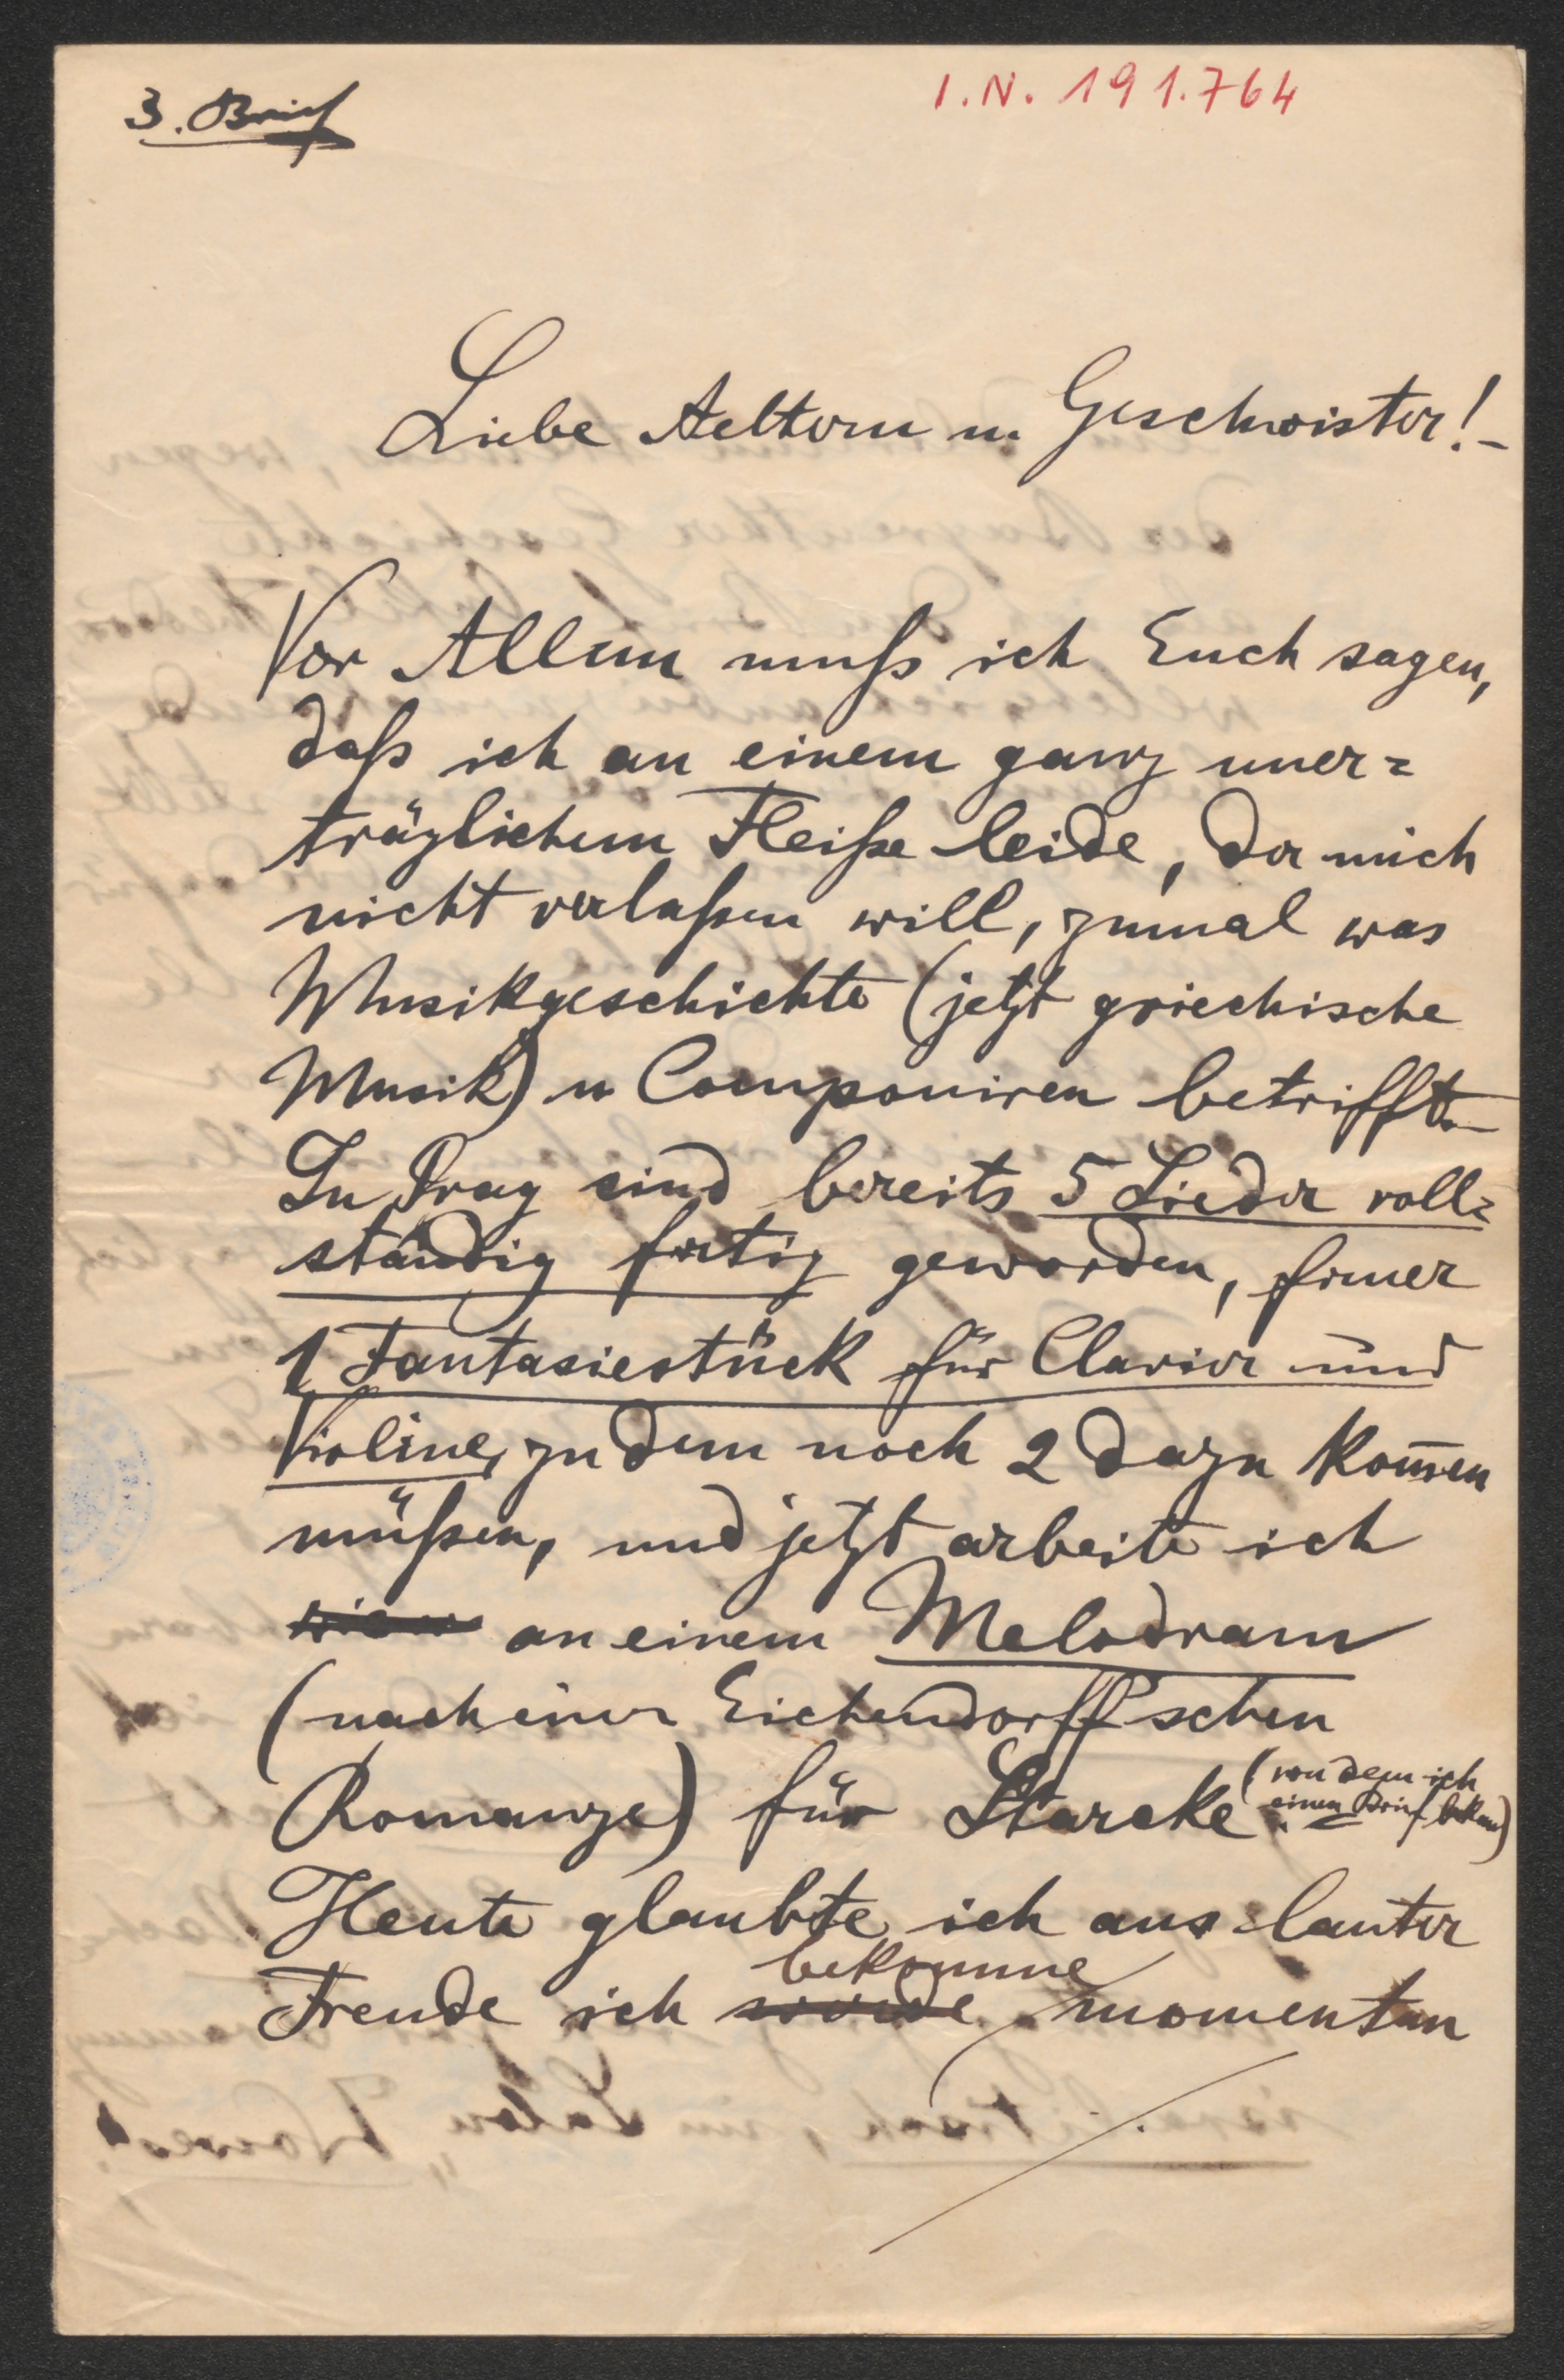 3. Brief
I. N. 191.764
Liebe Aeltern u. Geschwister! –
Vor Allem muſs ich Euch sagen,
daſs ich an einem ganz uner=
träglichem Fleiſse leide, der mich
nicht verlaſsen will, zumal was
Musikgeschichte (jetzt griechische
Musik) u Componiren betrifft. –
In Prag sind bereits 5 Lieder voll=
ständig fertig geworden, ferner
1 Fantasiestück für Clavier und
Violine, zu dem noch 2 dazu kom̄en
müſsen, und jetzt arbeite ich
an einem Melodram
(nach einer Eichendorff'schen
Romanze) für Starcke (von dem ich
einen Brief bekam)
Heute glaubte ich aus lauter
bekomme
Freude ich werde momentan